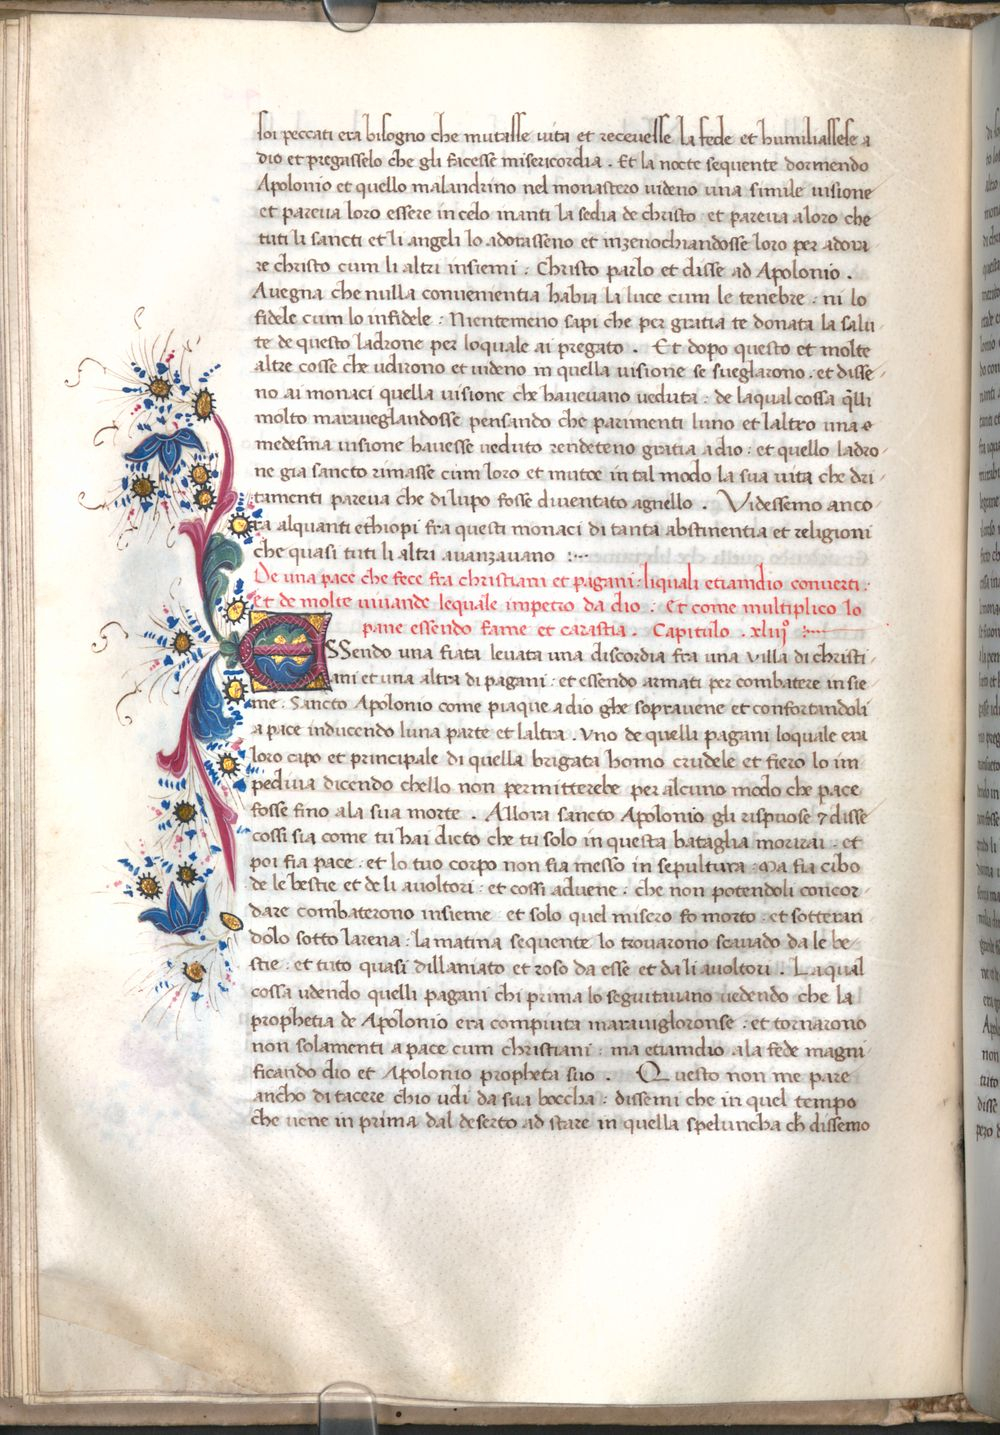 soi peccati era bisogno che mutasse uita et receuesse la fede et humiliassese a
dio et pregasselo che gli facesse misericordia . Et la nocte sequente dormendo
Apolonio et quello malandrino nel monastero uideno una simile uisione
et pareua loro essere in celo inanti la sedia de christo et pareua a loro che
tuti li sancti et li angeli lo adorasseno et inzenochiandosse loro per adora
re christo cum li altri insiemi : Christo parlo et disse ad Apolonio .
Auegna che nulla conuenientia habia la luce cum le tenebre : ni lo
fidele cum lo infidele : Nientemeno sapi che per gratia te donata la salu
te de questo ladrone per loquale ai pregato . Et dopo questo et molte
altre cosse che udirono et uideno in quella uisione se sueglarono : et disse
no ai monaci quella uisione che haueuano ueduta : de laqual cossa q̃lli
molto maraueglandosse pensando che parimenti luno et laltro una e
medesma uisione hauesse ueduto rendeteno gratia a dio : et quello ladro
ne gia sancto rimasse cum loro et mutoe in tal modo la sua uita che dri
tamenti pareua che di lupo fosse diuentato agnello . Videssemo anco
ra alquanti ethiopi fra questi monaci di tanta abstinentia et religioni
che quasi tuti li altri auanzauano :~
De una pace che fece fra christiani et pagani : liquali etiamdio conuerti :
et de molte uiuande lequale impetro da dio : et come multiplico lo
pane essendo fame et carastia . Capitulo . xliiij° :~
ESSendo una fiata leuata una discordia fra una uilla di christi
ani et una altra di pagani : et essendo armati per combatere insie
me : Sancto Apolonio come piaque a dio ghe soprauene et confortandoli
a pace inducendo luna parte et laltra . Vno de quelli pagani loquale era
loro capo et principale di quella brigata homo crudele et fiero lo im
pediua dicendo chello non permitterebe per alcuno modo che pace
fosse fino ala sua morte . Allora sancto Apolonio gli rispuose 7 disse
cossi sia come tu hai dicto che tu solo in questa bataglia morirai : et
poi fia pace : et lo tuo corpo non fia messo in sepultura : Ma fia cibo
de le bestie et de li auoltori : et cossi aduene : che non potendoli concor
dare combaterono insieme et solo quel misero fo morto : et sotteran
dolo sotto larena : la matina sequente lo trouarono scauado da le be
stie : et tuto quasi dillaniato et roso da esse et da li auoltori . Laqual
cossa udendo quelli pagani chi prima lo seguitauano uedendo che la
prophetia de Apolonio era compiuta marauigloronse : et tornarono
non solamenti a pace cum christiani : ma etiamdio ala fede magni
ficando dio et Apolonio propheta suo . Questo non me pare
ancho di tacere chio udi da sua boccha : dissemi che in quel tempo
che uene in prima dal deserto ad stare in quella speluncha ch̃ dissemo